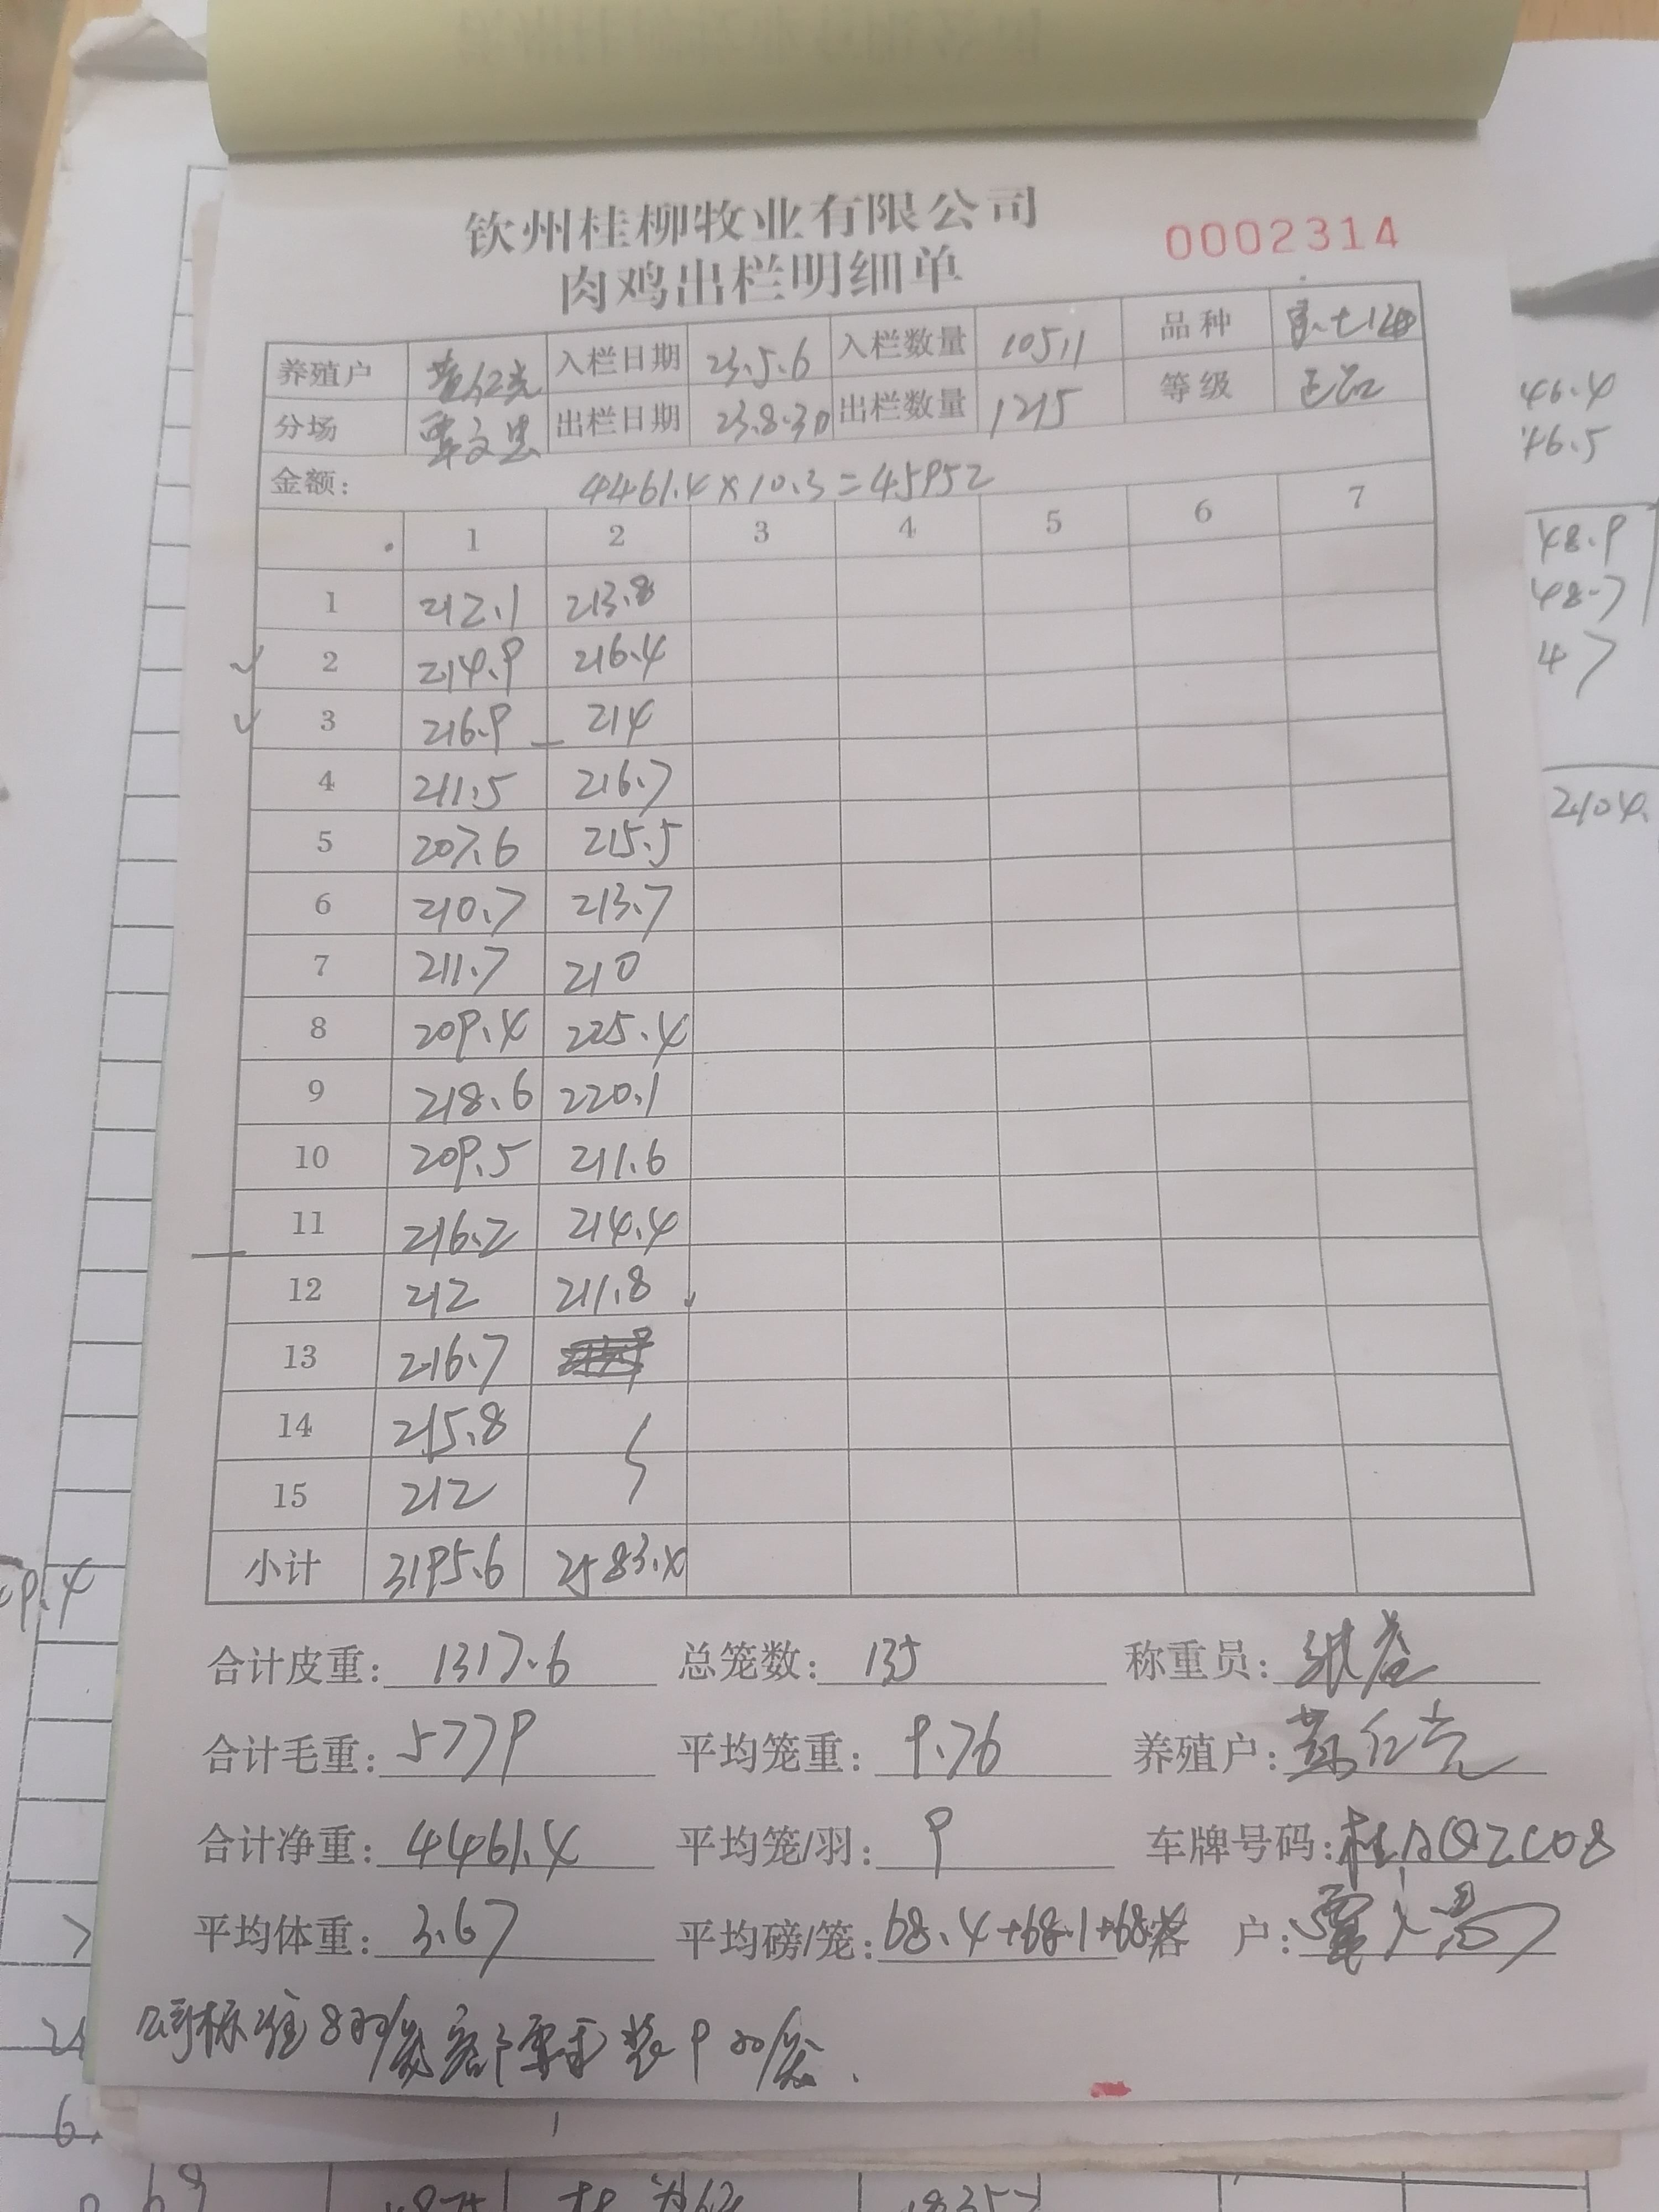 钦州桂柳牧业有限公司
肉鸡出栏明细单
0002314
养殖户 入栏日期 23.5.6 入栏数量 品种
分场 覃文思 出栏日期 23.8.30 出栏数量 1215 等级
金额: 4461.4×10.3=45952
1 2 3 4 5 6 7
1 212.1 213.8
2 214.9 216.4
3 216.9 214
4 211.5 216.7
5 207.6 215.5
6 210.7 213.7
7 211.7 210
8 209.4 225.4
9 218.6 220.1
10 209.5 211.6
11 216.2 214.4
12 212 211.8
13 216.7
14 215.8
15 212
小计 3195.6 2583.4
合计皮重: 1317.6 总笼数: 135 称重员:
合计毛重: 5779 平均笼重: 9.76 养殖户:
合计净重: 4461.4 平均笼/羽: 9 车牌号码: 桂AQZC08
平均体重: 3.67 平均磅/笼: 68.4+68.1+68 客户:
标准8羽/笼客户要求装9羽/笼.
46.4
46.5
48.9
48.7
47
2404.